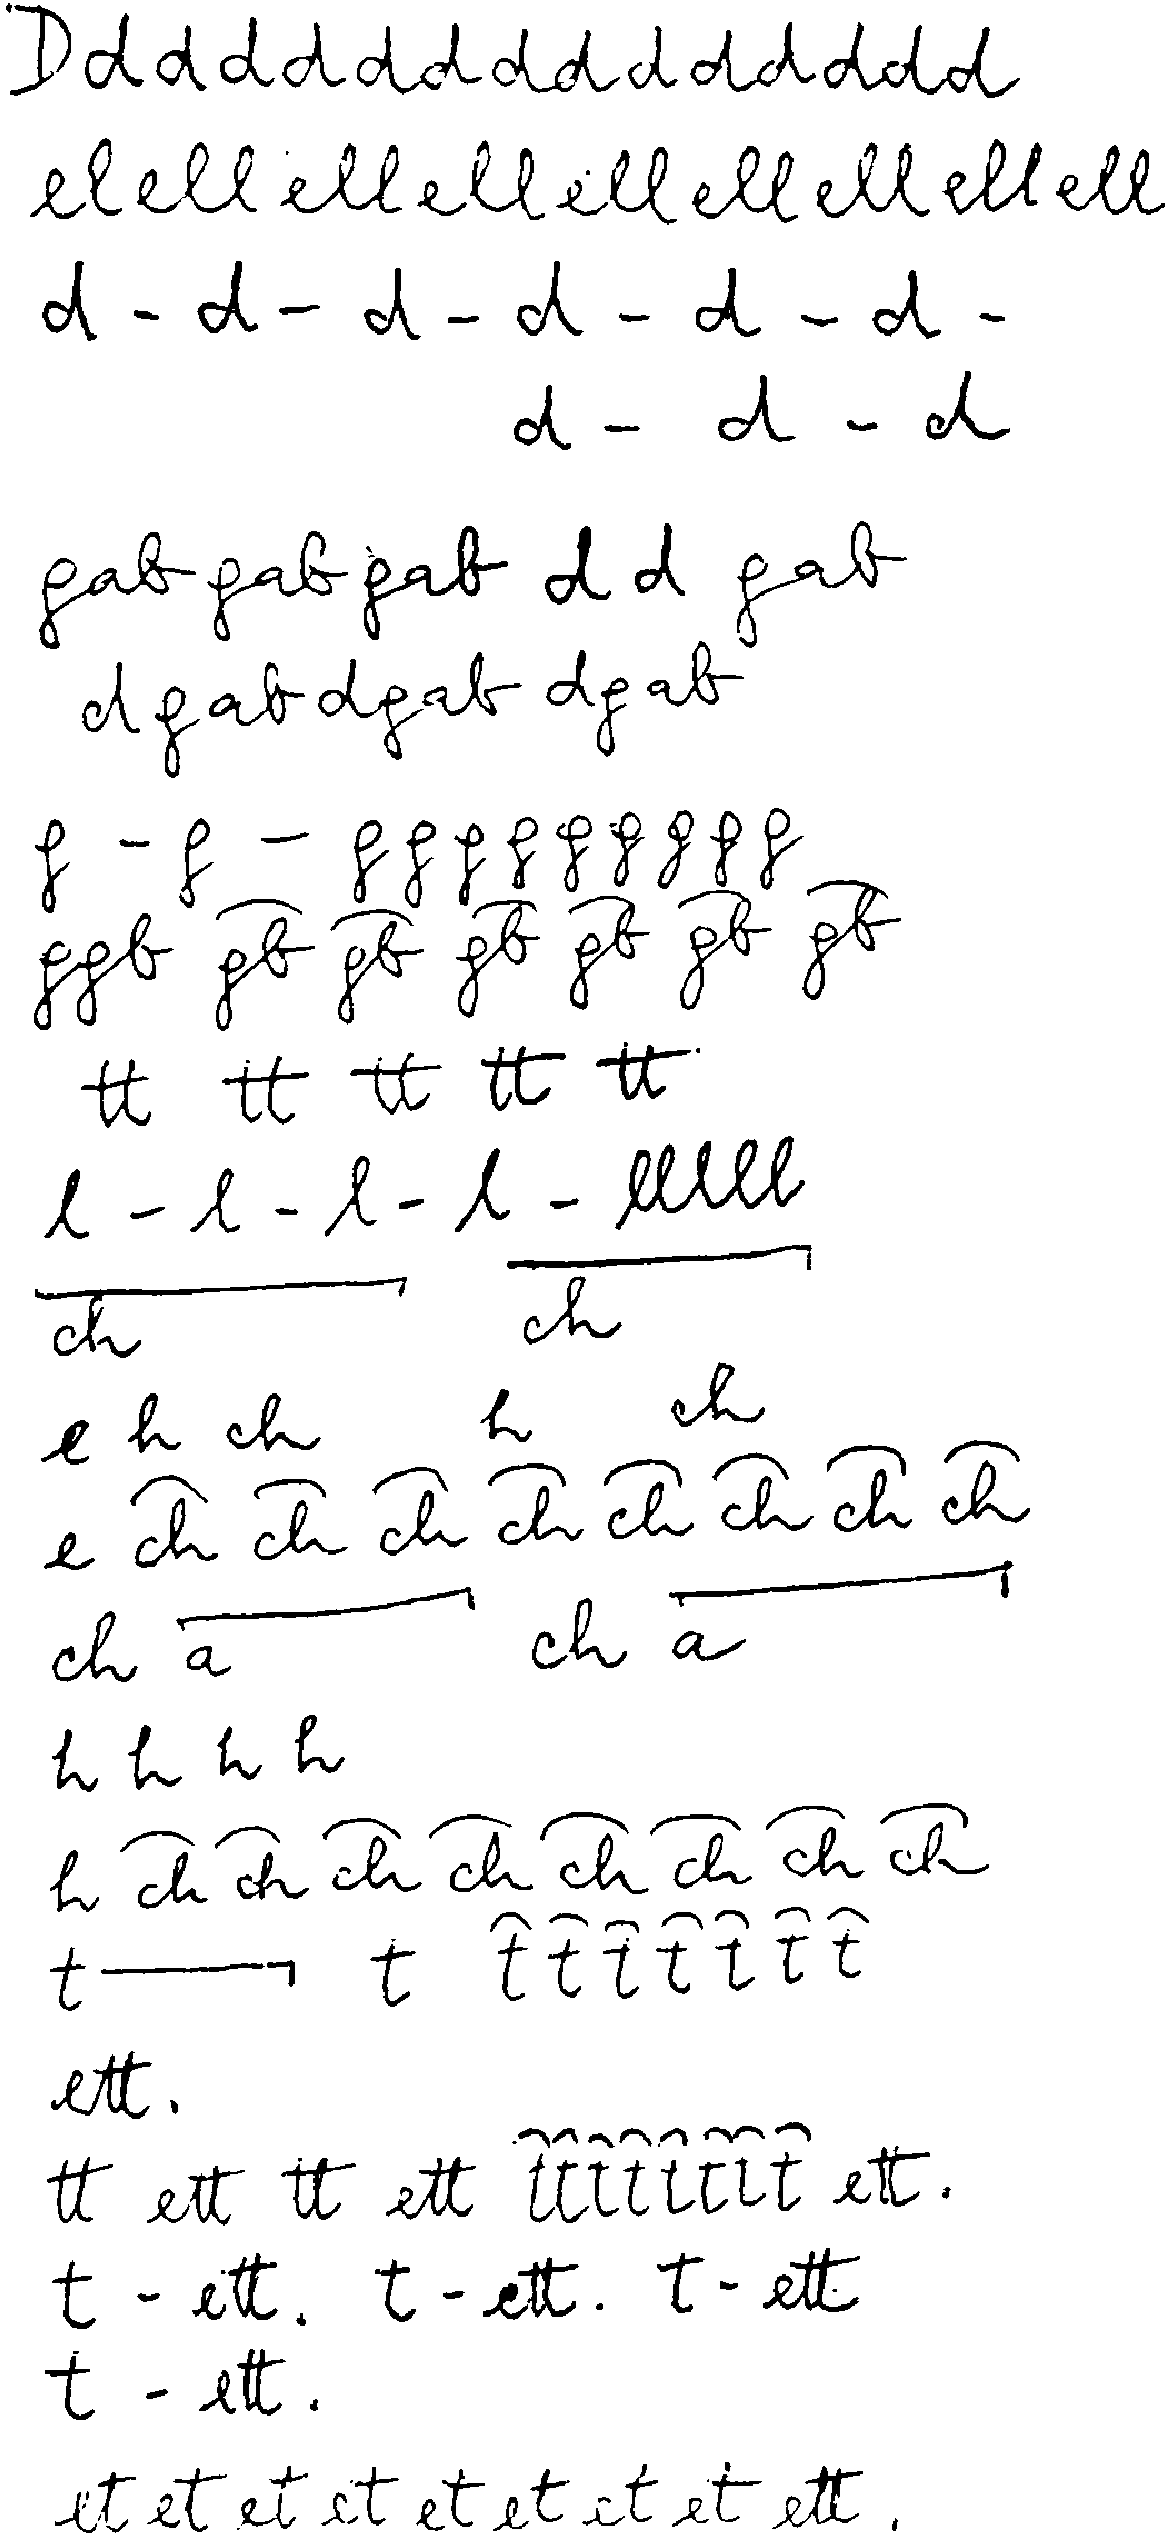 D d d d d d d d d d d d d d d
el ell ell ell ell ell ell ell ell
d - d - d - d - d - d -
d - d - d
gab gab gab d d gab
d gab d gab d gab
g - g - g g g g g g g g g
g gb gb gb gb gb gb gb
tt tt tt tt tt
l - l - l - l - llllll
ch ch
e h ch h ch
e ch ch ch ch ch ch ch ch
ch a ch a
h h h h
h ch ch ch ch ch ch ch ch
t t t t t t t t t
ett.
tt ett tt ett t t t t t t t t ett.
t - ett. t - ett. t - ett
t - ett.
et et et et et et et et ett.